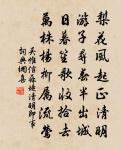 梨花風起正清明
游子尋春半出城
日暮笙歌收拾去
萬株楊柳屬流鶯
吳惟信蘇堤清明即事